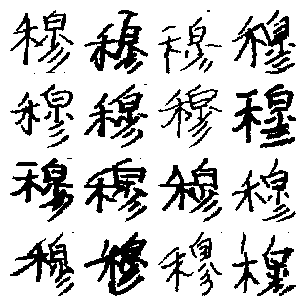 穆穆穆穆
穆穆穆穆
穆穆穆穆
穆穆穆穆